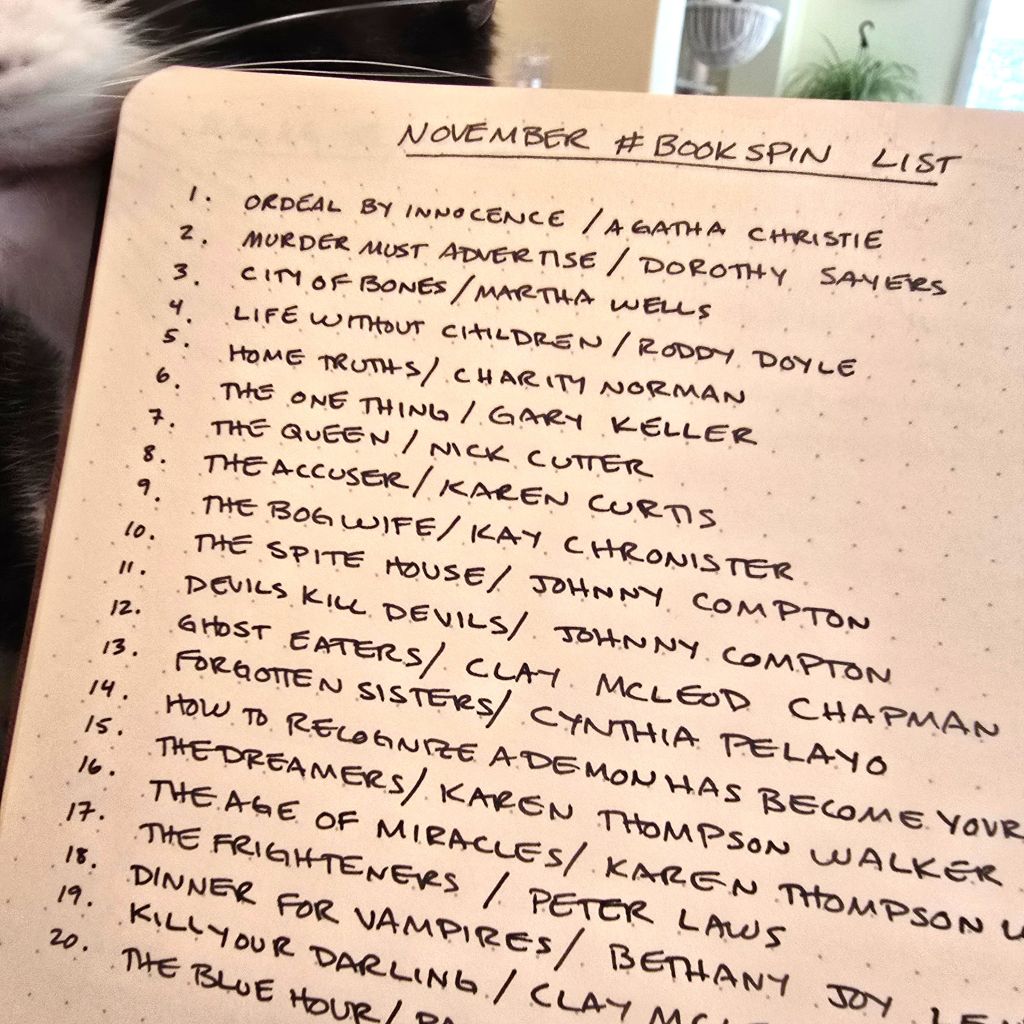 NOVEMBER #BOOKSPIN LIST
1. ORDEAL BY INNOCENCE / AGATHA CHRISTIE
2. MURDER MUST ADVERTISE / DOROTHY SAYERS
3. CITY OF BONES / MARTHA WELLS
4. LIFE WITHOUT CHILDREN / RODDY DOYLE
5. HOME TRUTHS / CHARITY NORMAN
6. THE ONE THING / GARY KELLER
7. THE QUEEN / NICK CUTTER
8. THE ACCUSER / KAREN CURTIS
9. THE BOG WIFE / KAY CHRONISTER
10. THE SPITE HOUSE / JOHNNY COMPTON
11. DEVILS KILL DEVILS / JOHNNY COMPTON
12. GHOST EATERS / CLAY MCLEOD CHAPMAN
13. FORGOTTEN SISTERS / CYNTHIA PELAYO
14. HOW TO RECOGNIZE A DEMON HAS BECOME YOUR
15. THE DREAMERS / KAREN THOMPSON WALKER
16. THE AGE OF MIRACLES / KAREN THOMPSON
17. THE FRIGHTENERS / PETER LAWS
18. DINNER FOR VAMPIRES / BETHANY JOY
19. KILL YOUR DARLING / CLAY
20. THE BLUE HOUR /